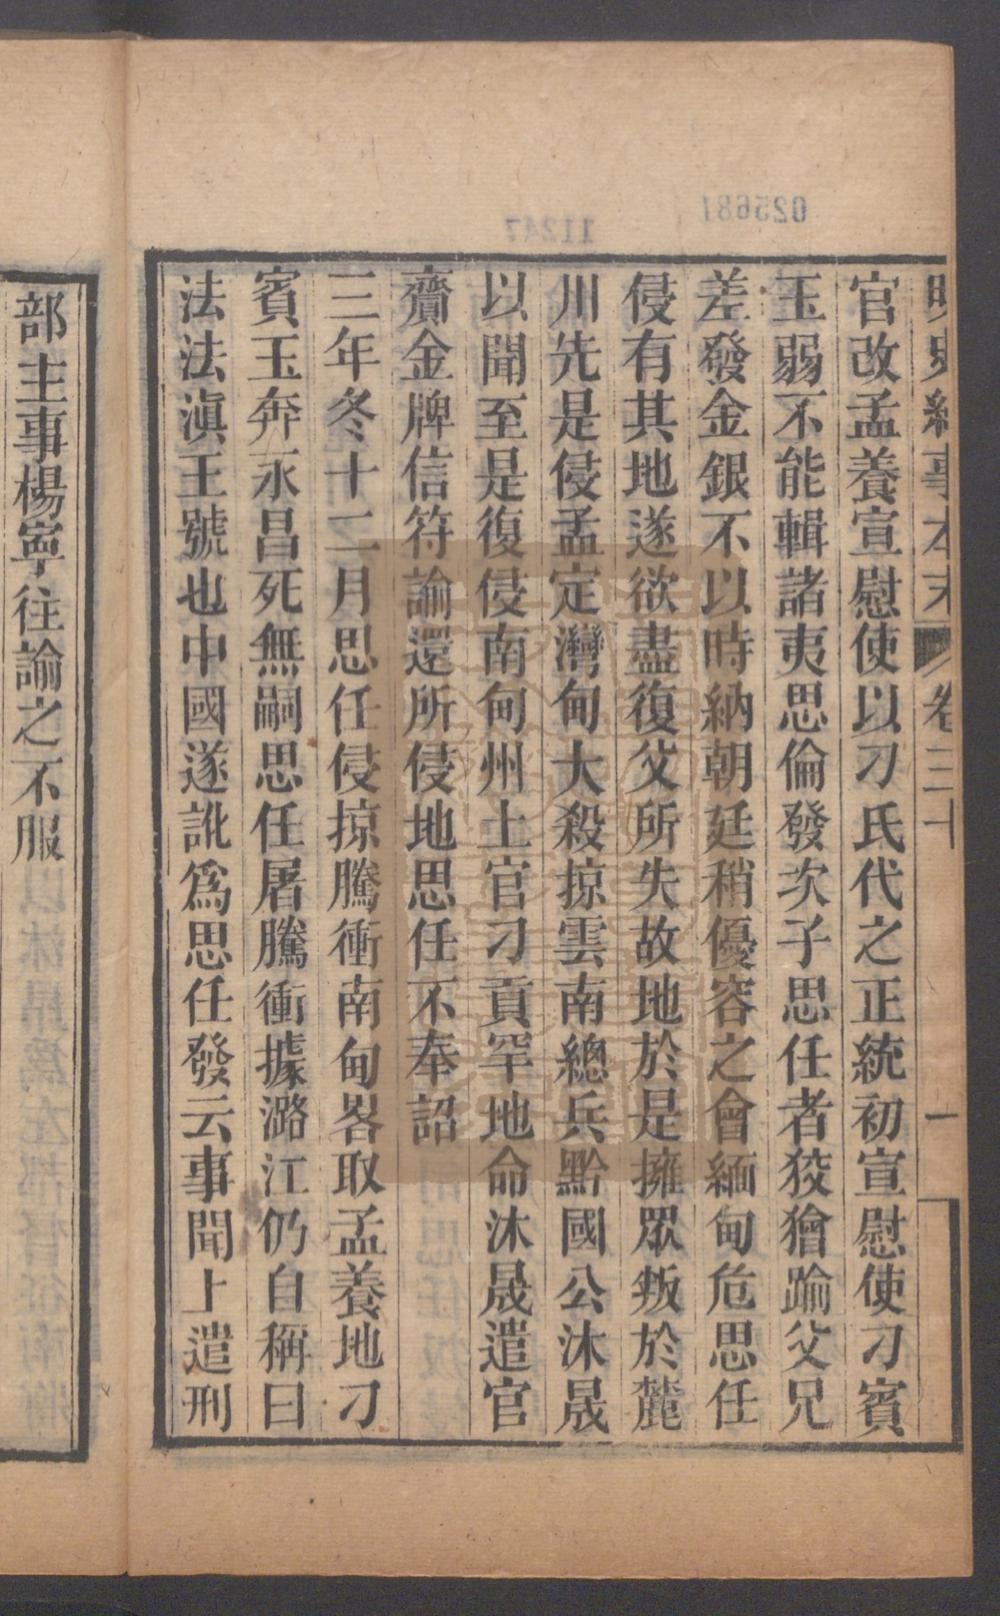 明史紀事本末 卷三十 一
官改孟養宣慰使以刀氏代之正統初宣慰使刀賓
玉弱不能輯諸夷思倫發次子思任者狡獪踰父兄
差發金銀不以時納朝廷稍優容之會緬甸危思任
侵有其地遂欲盡復父所失故地於是擁眾叛於麓
川先是侵孟定灣甸大殺掠雲南總兵黔國公沐晟
以聞至是復侵南甸州土官刀貢罕地命沐晟遣官
齎金牌信符諭還所侵地思任不奉詔
三年冬十二月思任侵掠騰衝南甸畧取孟養地刀
賓玉奔永昌死無嗣思任屠騰衝據潞江仍自稱曰
法法滇王號也中國遂訛爲思任發云事聞上遣刑
部主事楊寧往諭之不服
025681
11247